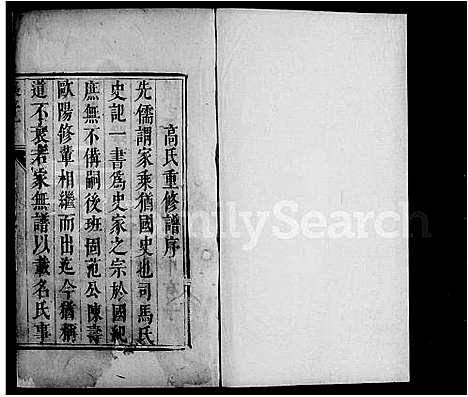 高氏重修譜序
先儒謂家乘猶國史也司馬氏
史記一書爲史家之宗於國紀
庶無不備嗣後班固范公陳壽
歐陽修輩相繼而出迄今猶稱
道不衰若家無譜以載名氏事
FamilySearch